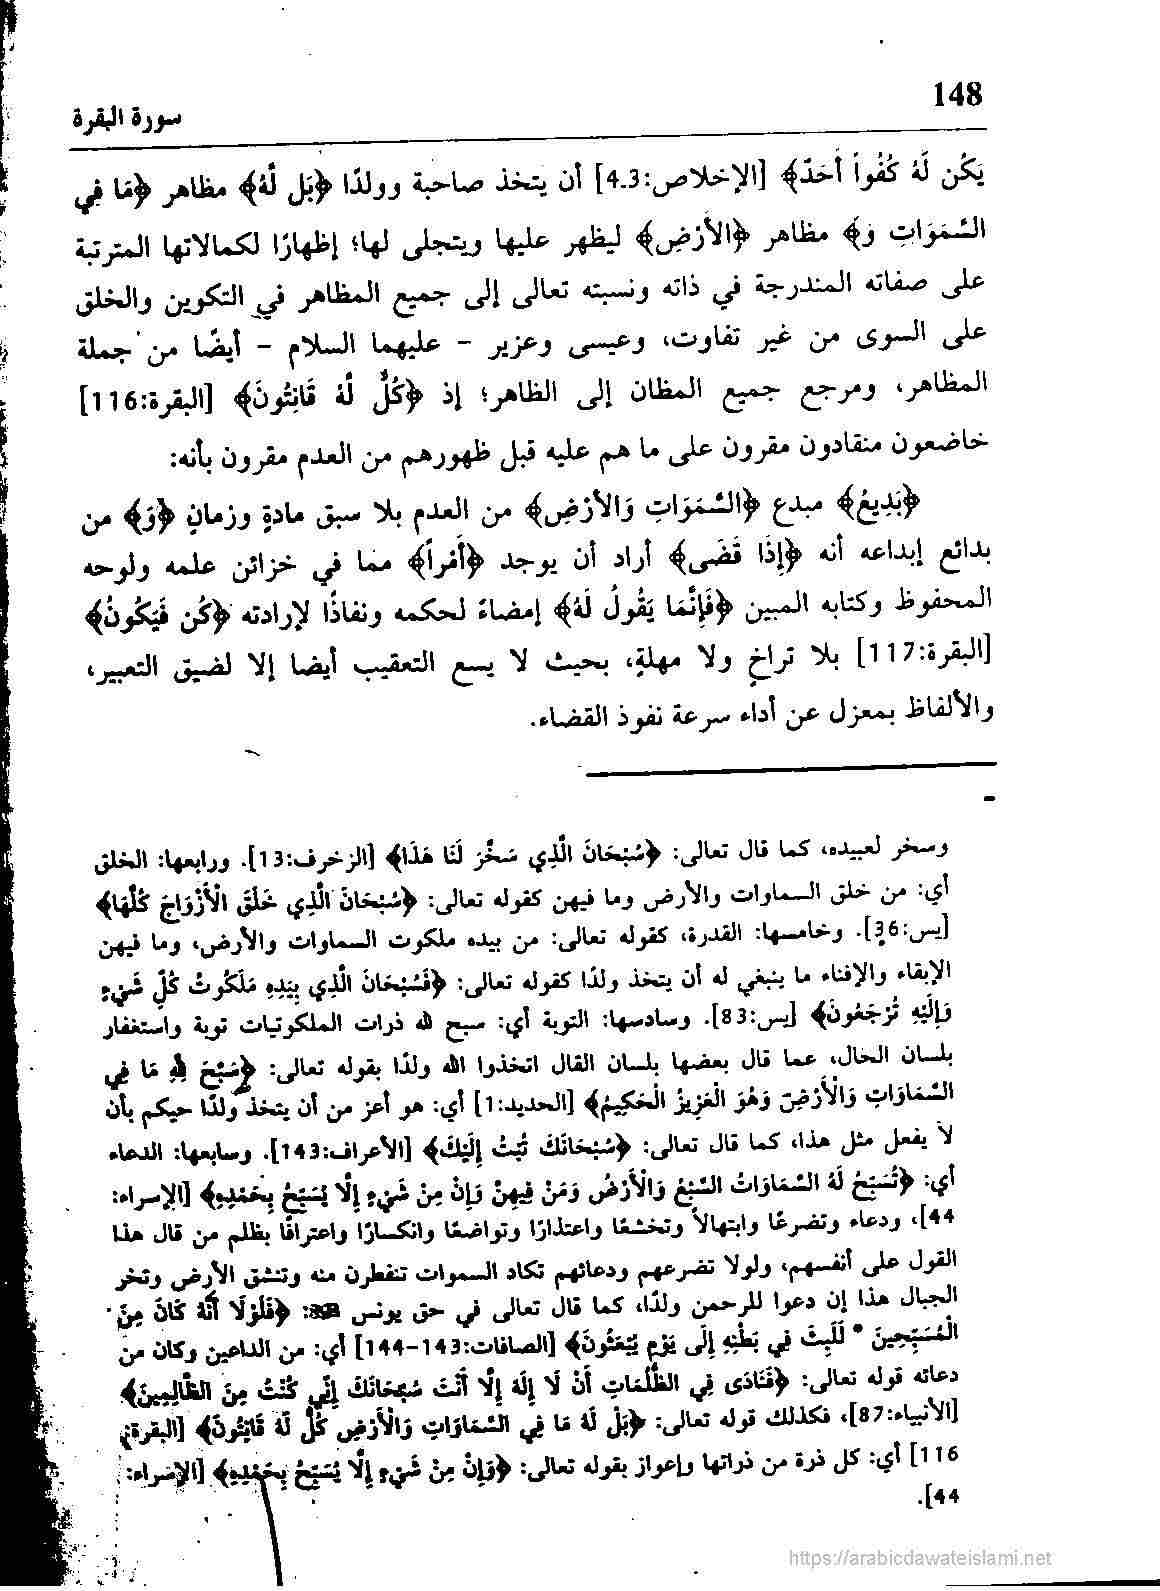 148
سورة البقرة
يَكُن لَّهُ كُفُواً أَحَدٌ﴾ [الإخلاص:4.3] أن يتخذ صاحبة وولدًا ﴿بَل لَّهُ﴾ مظاهر ﴿مَا فِي
السَّمَوَاتِ وَ﴾ مظاهر ﴿الأَرْضِ﴾ ليظهر عليها ويتجلى لها؛ إظهارًا لكمالاتها المترتبة
على صفاته المندرجة في ذاته ونسبته تعالى إلى جميع المظاهر في التكوين والخلق
على السوى من غير تفاوت، وعيسى وعزير - عليهما السلام - أيضًا من جملة
المظاهر، ومرجع جميع المظان إلى الظاهر؛ إذ ﴿كُلٌّ لَّهُ قَانِتُونَ﴾ [البقرة:116]
خاضعون منقادون مقرون على ما هم عليه قبل ظهورهم من العدم مقرون بأنه:
﴿بَدِيعُ﴾ مبدع ﴿السَّمَوَاتِ وَالأَرْضِ﴾ من العدم بلا سبق مادةٍ وزمانٍ ﴿وَ﴾ من
بدائع إبداعه أنه ﴿إِذَا قَضَى﴾ أراد أن يوجد ﴿أَمْراً﴾ مما في خزائن علمه ولوحه
المحفوظ وكتابه المبين ﴿فَإِنَّمَا يَقُولُ لَهُ﴾ إمضاءً لحكمه ونفاذًا لإرادته ﴿كُن فَيَكُونُ﴾
[البقرة:117] بلا تراخٍ ولا مهلةٍ، بحيث لا يسع التعقيب أيضا إلا لضيق التعبير،
والألفاظ بمعزل عن أداء سرعة نفوذ القضاء.
وسخر لعبيده، كما قال تعالى: ﴿سُبْحَانَ الَّذِي سَخَّرَ لَنَا هَذَا﴾ [الزخرف:13]. ورابعها: الخلق
أي: من خلق السماوات والأرض وما فيهن كقوله تعالى: ﴿سُبْحَانَ الَّذِي خَلَقَ الْأَزْوَاجَ كُلَّهَا﴾
[يس:36]. وخامسها: القدرة، كقوله تعالى: من بيده ملكوت السماوات والأرض، وما فيهن
الإبقاء والإفناء ما ينبغي له أن يتخذ ولدًا كقوله تعالى: ﴿فَسُبْحَانَ الَّذِي بِيَدِهِ مَلَكُوتُ كُلِّ شَيْءٍ
وَإِلَيْهِ تُرْجَعُونَ﴾ [يس:83]. وسادسها: التوبة أي: سبح لله ذرات الملكوتيات توبة واستغفار
بلسان الحال، عما قال بعضها بلسان القال اتخذوا الله ولدًا بقوله تعالى: ﴿سَبَّحَ لِلَّهِ مَا فِي
السَّمَاوَاتِ وَالْأَرْضِ وَهُوَ الْعَزِيزُ الْحَكِيمُ﴾ [الحديد:1] أي: هو أعز من أن يتخذ ولدًا حيكم بأن
لا يفعل مثل هذا، كما قال تعالى: ﴿سُبْحَانَكَ تُبْتُ إِلَيْكَ﴾ [الأعراف:143]. وسابعها: الدعاء
أي: ﴿تُسَبِّحُ لَهُ السَّمَاوَاتُ السَّبْعُ وَالْأَرْضُ وَمَنْ فِيهِنَّ وَإِنْ مِنْ شَيْءٍ إِلَّا يُسَبِّحُ بِحَمْدِهِ﴾ [الإسراء:
44]، ودعاء وتضرعًا وابتهالاً وتخشعًا واعتذارًا وتواضعًا وانكسارًا واعترافًا بظلم من قال هذا
القول على أنفسهم، ولولا تضرعهم ودعائهم تكاد السموات تنفطرن منه وتنشق الأرض وتخر
الجبال هذا إن دعوا للرحمن ولدًا، كما قال تعالى في حق يونس : ﴿فَلَوْلَا أَنَّهُ كَانَ مِنَ
الْمُسَبِّحِينَ * لَلَبِثَ فِي بَطْنِهِ إِلَى يَوْمِ يُبْعَثُونَ﴾ [الصافات:143-144] أي: من الداعين وكان من
دعائه قوله تعالى: ﴿فَنَادَى فِي الظُّلُمَاتِ أَنْ لَا إِلَهَ إِلَّا أَنْتَ سُبْحَانَكَ إِنِّي كُنْتُ مِنَ الظَّالِمِينَ﴾
[الأنبياء:87]، فكذلك قوله تعالى: ﴿بَلْ لَهُ مَا فِي السَّمَاوَاتِ وَالْأَرْضِ كُلٌّ لَهُ قَانِتُونَ﴾ [البقرة:
116] أي: كل ذرة من ذراتها وإعواز بقوله تعالى: ﴿وَإِنْ مِنْ شَيْءٍ إِلَّا يُسَبِّحُ بِحَمْدِهِ﴾ [الإسراء:
44].
https://arabicdawateislami.net